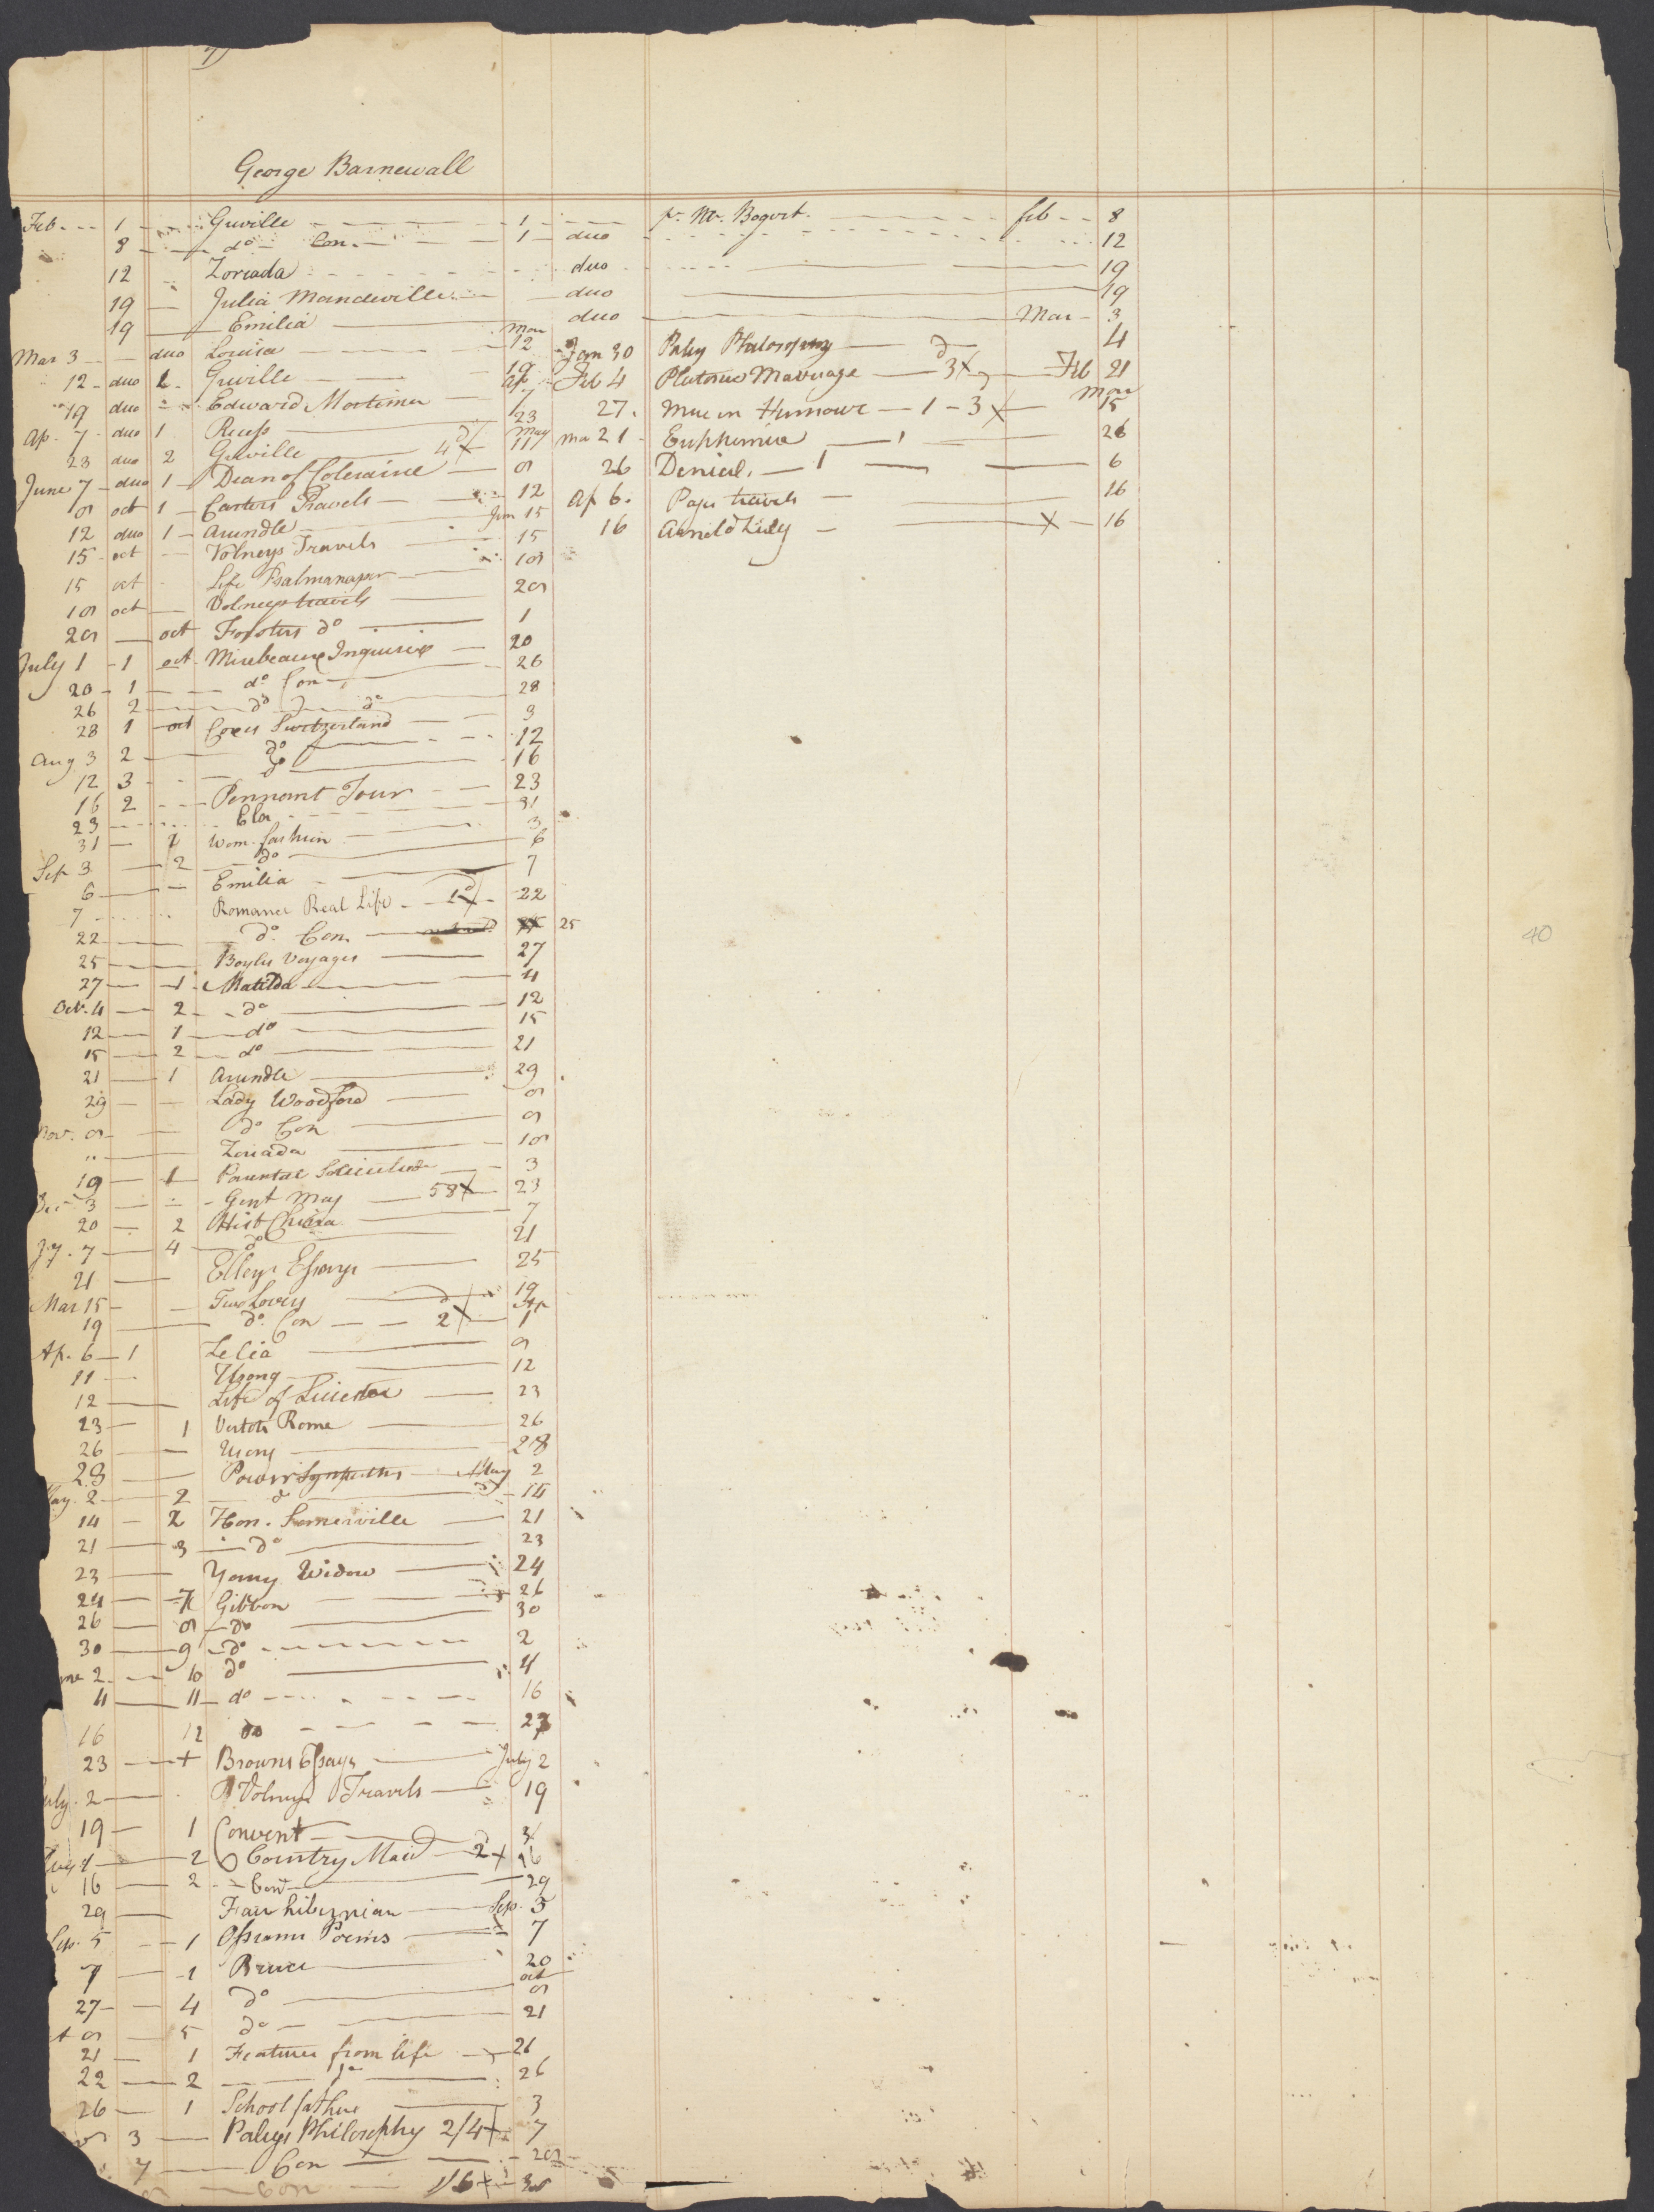 George Barnewall
Feb 1 Greville 1 pr. Mr. Bogert. feb 8
8 do Con. 1 duo 12
12 Zoriada duo 19
19 Julia Mandeville duo 19
19 Emilia duo Mar 3
Mar 3 duo Louisa Mar 12
12 duo 2 Greville 19
19 duo Edward Mortimer Ap 7
Ap. 7 duo 1 23
23 duo 2 Greville 4 May 11
June 7 duo 1 Dean of Coleraine 8
8 oct 1 Carters Travels 12
12 duo 1 Arundle Jun 15
15 oct Volneys Travels 15
15 oct Life Psalmanazer 18
18 oct Volneys travels 28
28 oct Fosters do 1
July 1 1 oct Mirebeaux Inquiries 20
20 1 do Con 26
26 2 do do 28
28 1 oct Coxes Switzerland 3
Aug 3 2 do 12
12 3 do 16
16 2 Pennant Tour 23
23 31
31 Wom. fashion 3
Sep 3 2 do 6
6 Emilia 7
7 Romance Real Life 22
22 do Con. 25
25 Boyles Voyages 27
27 1 Matilda 4
Oct. 4 2 do 12
12 1 do 15
15 2 do 21
21 1 Arundle 29
29 Lady Woodford 8
Nov. 8 do Con 8
" Zoriada 18
19 1 Parental Solicitude 3
Dec 3 Gent Mag 58 23
20 2 Hist China 7
Jy. 7 4 do 21
21 Essays 25
Mar 15 Two Lovers 19
19 do Con 2 Ap 1
Ap. 6 1 Zelia 8
11 Usong 12
12 Life of Leicester 23
23 1 Vertots Rome 26
26 Usong 28
28 Power Sympathy May 2
May 2 2 do 14
14 2 Hon. Somerville 21
21 3 do 23
23 Young Widow 24
24 7 Gibbon 26
26 8 do 30
30 9 do 2
ne 2 10 do 4
4 11 do 16
16 12 do 23
23 Browns Essays July 2
uly 2 Volneys Travels 19
19 1 Convent
2 Country Maid 2 16
16 2 Con 29
29 Fair hibernian Sep. 5
Sep. 5 1 Ossians Poems 7
7 1 Bruce 20
27 4 do oct 8
t 8 5 do 21
21 1 Features from life 26
22 2 do 26
26 1 School fathers 3
3 Paleys Philosophy 2/4 7
7 Con 28
Con 1/6
Jan 30 Paley Philosophy 4
Feb 4 Plutonus Marriage 3 Feb 21
27. Muse in Humour 1 3 Mar 15
Ma 21 Euphemia 1 26
26 Denial. 1 6
Ap 6. Pages travels 16
16 Arnold Zulig 16
40